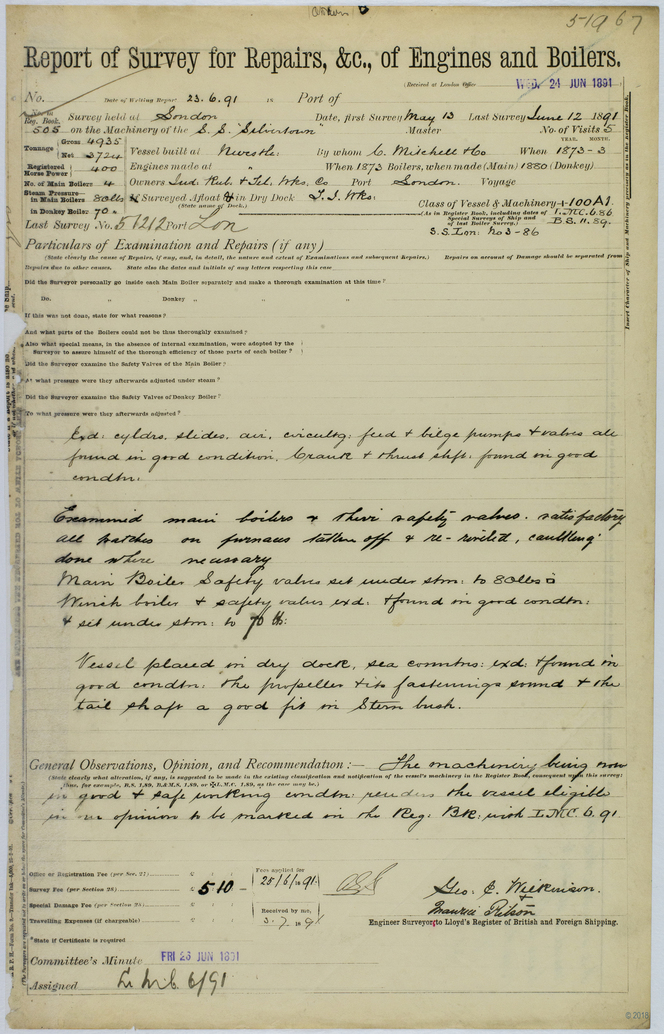 51967
Report of Survey for Repairs, &c., of Engines and Boilers.
(Received at London Office WED. 24 JUN 1891
No. Date of Writing Report 23.6.91 in Port of
No. in Reg. Book. Survey held at London Date, first Survey May 13 Last Survey June 12 1891
505 on the Machinery of the S.S. "Silvertown" Master No. of Visits 5
Tonnage Gross 4935 Net 3724 Vessel built at Newcstle: By whom C. Mitchell & Co When 1873-3 YEAR. MONTH.
Registered Horse Power 400 Engines made at " When 1873 Boilers, when made (Main) 1880 (Donkey)
No. of Main Boilers 4 Owners Ind. Rub. & Tel. Wks. Co Port London. Voyage
Steam Pressure in Main Boilers 80lbs If Surveyed Afloat or in Dry Dock T.I. Wks:
(State name of Dock.)
in Donkey Boiler 70 "
Class of Vessel & Machinery 100A1.
(As in Register Book, including dates of Special Surveys of Ship and of last Boiler Survey) L.M.C. 6.86
B.S. 11.89.
Last Survey No. 51212 Port Lon
S.S. Lon: No 3-86
Insert Character of Ship and Machinery precisely as in the register Book.
Particulars of Examination and Repairs (if any)
(State clearly the cause of Repairs, if any, and, in detail, the nature and extent of Examinations and subsequent Repairs.) Repairs on account of Damage should be separated from
Repairs due to other causes. State also the dates and initials of any letters respecting this case
Did the Surveyor personally go inside each Main Boiler separately and make a thorough examination at this time?
Do. " Donkey " " "
If this was not done, state for what reasons?
And what parts of the Boilers could not be thus thoroughly examined?
Also what special means, in the absence of internal examination, were adopted by the
Surveyor to assure himself of the thorough efficiency of those parts of each boiler?
Did the Surveyor examine the Safety Valves of the Main Boiler?
At what pressure were they afterwards adjusted under steam?
Did the Surveyor examine the Safety Valves of Donkey Boiler?
To what pressure were they afterwards adjusted?
Exd: cyldrs. slides. air, circultg. feed & bilge pumps & valves all
found in good condition. Crank & thrust shft: found in good
condtn:
Examined main boilers & their safety valves. satisfactory
all patches on furnaces taken off & re-riveted, caulking
done where necessary
Main Boiler Safety valves set under stm: to 80lbs
Winch boiler & safety valves exd: & found in good condtn:
& set under stm: to 70 lb:
Vessel placed in dry dock, sea connctns: exd: & found in
good condtn: the propeller & its fastenings sound & the
tail shaft a good fit in Stern bush.
General Observations, Opinion, and Recommendation:— The machinery being now
(State clearly what alteration, if any, is suggested to be made in the existing classification and notification of the vessel's machinery in the Register Book, consequent upon this survey;
thus, for example, B.S. 1,89, B.&M.S. 1,89, or L.M.C. 1,89, as the case may be.)
in good & safe working condtn: renders the vessel eligible
in our opinion to be marked in the Reg: Bk: with L.M.C. 6.91
Office or Registration Fee (per Sec. 27) £
Survey Fee (per Section 28) £ 5 10 -
Special Damage Fee (per Section 28) £
Travelling Expenses (if chargeable) £
Fees applied for
25/6/1891
Received by me,
3.7.1891
Geo. C. Wilkinson.
+
Maurice Ritson
Engineer Surveyors to Lloyd's Register of British and Foreign Shipping.
*State if Certificate is required
Committee's Minute FRI 26 JUN 1891
Assigned L.M.C. 6/91
© 2018